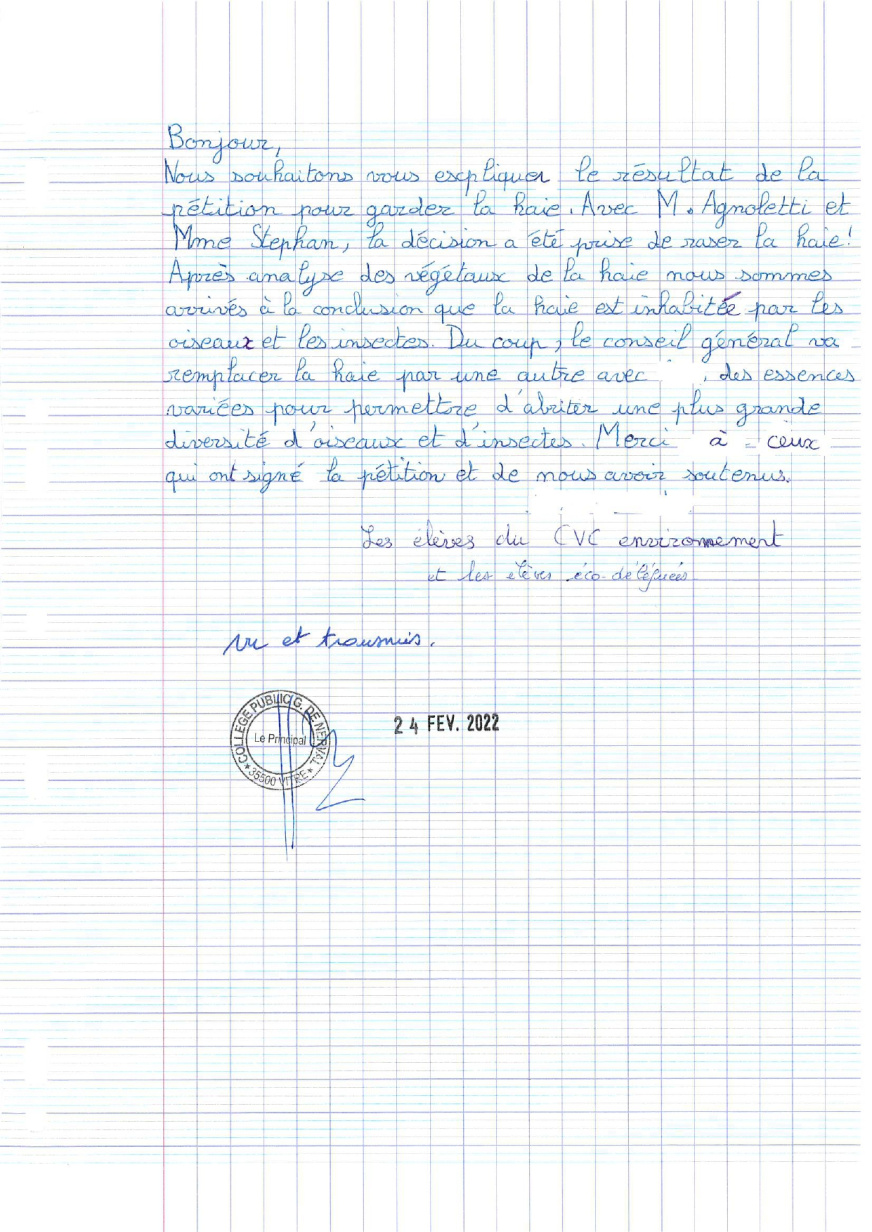 Bonjour,
Nous souhaitons vous expliquer le résultat de la
pétition pour garder la haie. Avec M. Agnoletti et
Mme Stephan, la décision a été prise de raser la haie!
Après analyse des végétaux de la haie nous sommes
arrivés à la conclusion que la haie est inhabitée par les
oiseaux et les insectes. Du coup, le conseil général va
remplacer la haie par une autre avec , des essences
variées pour permettre d'abriter une plus grande
diversité d'oiseaux et d'insectes. Merci à ceux
qui ont signé la pétition et de nous avoir soutenus.
Les élèves du CVC environnement
et les élèves éco-délégués
Vu et transmis.
COLLEGE PUBLIC G. DE NERVAL
Le Principal
* 35500 VITRE *
24 FEV. 2022